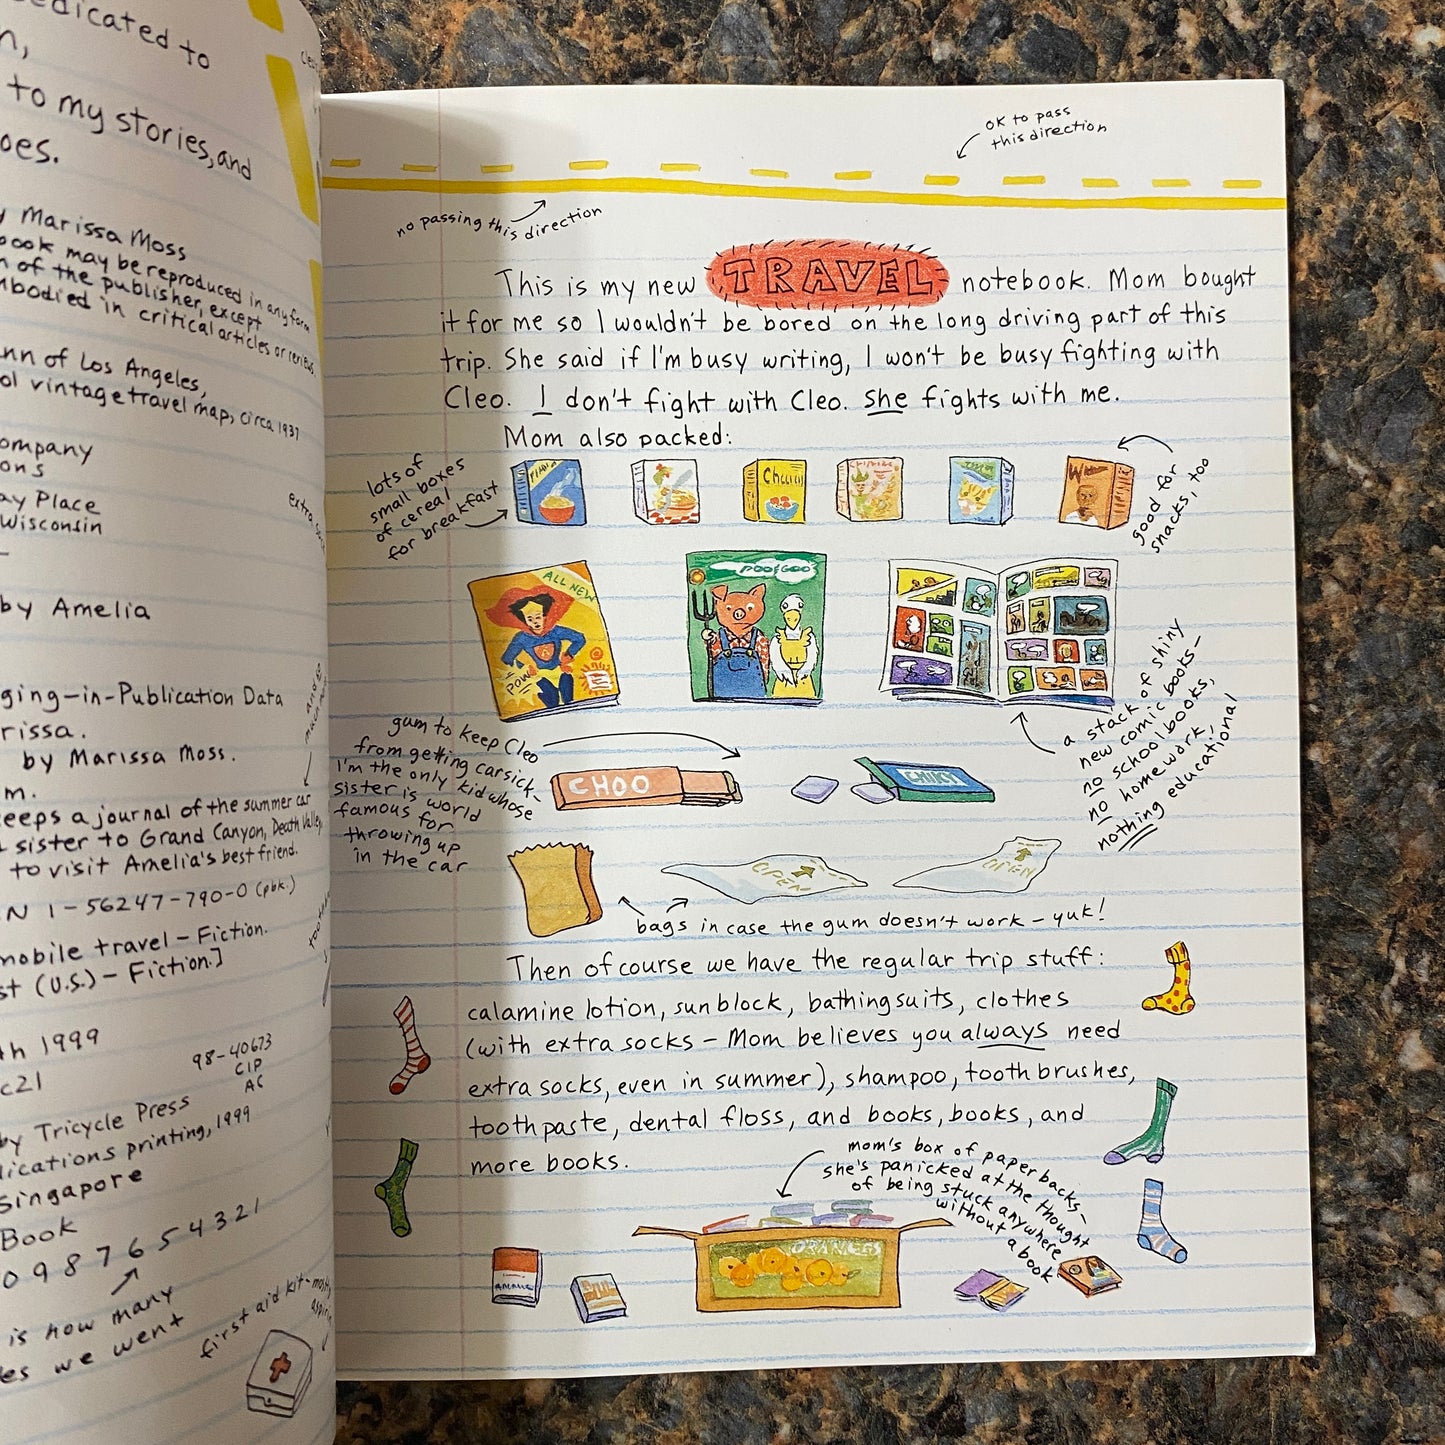 edicated to
to my stories, and
oes.
Marissa Moss
book may be reproduced in any form
n of the publisher, except
mbodied in critical articles or reviews
nn of Los Angeles,
ol vintage travel map, circa 1937
ompany
ons
ay Place
Wisconsin
extra
by Amelia
ging-in-Publication Data
rissa.
by Marissa Moss.
m.
eeps a journal of the summer car
sister to Grand Canyon, Death Valley
to visit Amelia's best friend.
N 1-56247-790-0 (pbk.)
mobile travel - Fiction.
st (U.S.) - Fiction.]
th 1999
c21
98-40673
CIP
AC
by Tricycle Press
lications printing, 1999
Singapore
Book
0 9 8 7 6 5 4 3 2 1
is how many
es we went
first aid kit - mostly
aspirin
OK to pass
this direction
no passing this direction
This is my new TRAVEL notebook. Mom bought
it for me so I wouldn't be bored on the long driving part of this
trip. She said if I'm busy writing, I won't be busy fighting with
Cleo. I don't fight with Cleo. She fights with me.
Mom also packed:
lots of
small boxes
of cereal
for breakfast
good for
snacks, too
ALL NEW
POW
POO & GOO
a stack of shiny
new comic books -
no school books,
no homework,
nothing educational
gum to keep Cleo
from getting carsick -
I'm the only kid whose
sister is world
famous for
throwing up
in the car
CHOO
OPEN
OPEN
bags in case the gum doesn't work - yuk!
Then of course we have the regular trip stuff:
calamine lotion, sunblock, bathing suits, clothes
(with extra socks - Mom believes you always need
extra socks, even in summer), shampoo, toothbrushes,
toothpaste, dental floss, and books, books, and
more books.
mom's box of paperbacks -
she's panicked at the thought
of being stuck anywhere
without a book
ORANGES